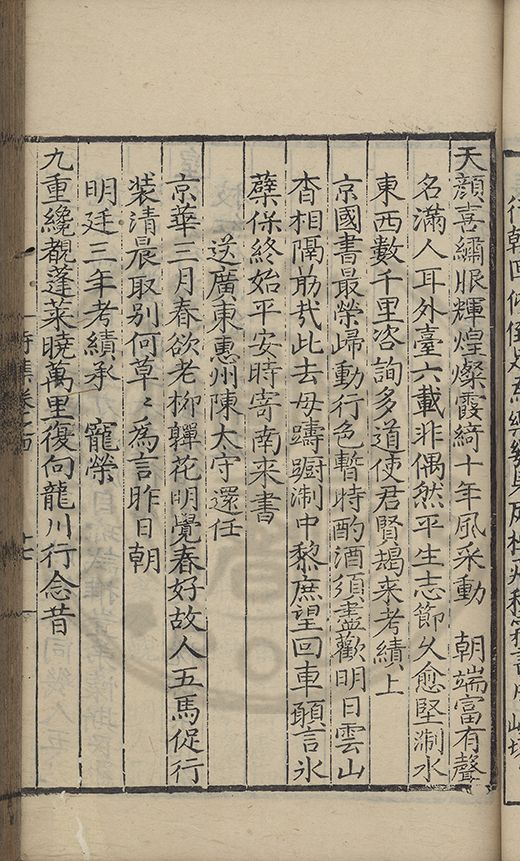 天顏喜繡服輝煌燦霞綺十年風采動 朝端富有聲
名滿人耳外臺六載非偶然平生志節久愈堅淛水
東西數千里咨詢多道使君賢朅来考績上
京國書最榮歸動行色暫時酌酒須盡歡明日雲山
杳相隔勖哉此去毋躊躕淛中黎庶望回車願言氷
蘗保終始平安時寄南来書
送廣東惠州陳太守還任
京華三月春欲老柳嚲花明覺春好故人五馬促行
裝清晨取別何草〻為言昨日朝
明廷三年考績承 寵榮
九重纔覩蓬萊曉萬里復向龍川行念昔
詩集卷之四 十七